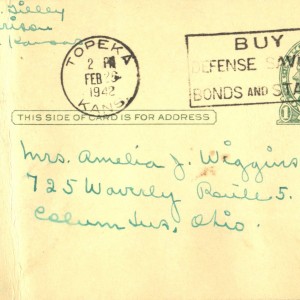 Gilley
Kansas
TOPEKA
2 PM
FEB 26
1942
KANS.
BUY
DEFENSE SAVI
BONDS AND STA
THIS SIDE OF CARD IS FOR ADDRESS
Mrs. Amelia J. Wiggins
725 Waverly Route 5.
Columbus, Ohio.